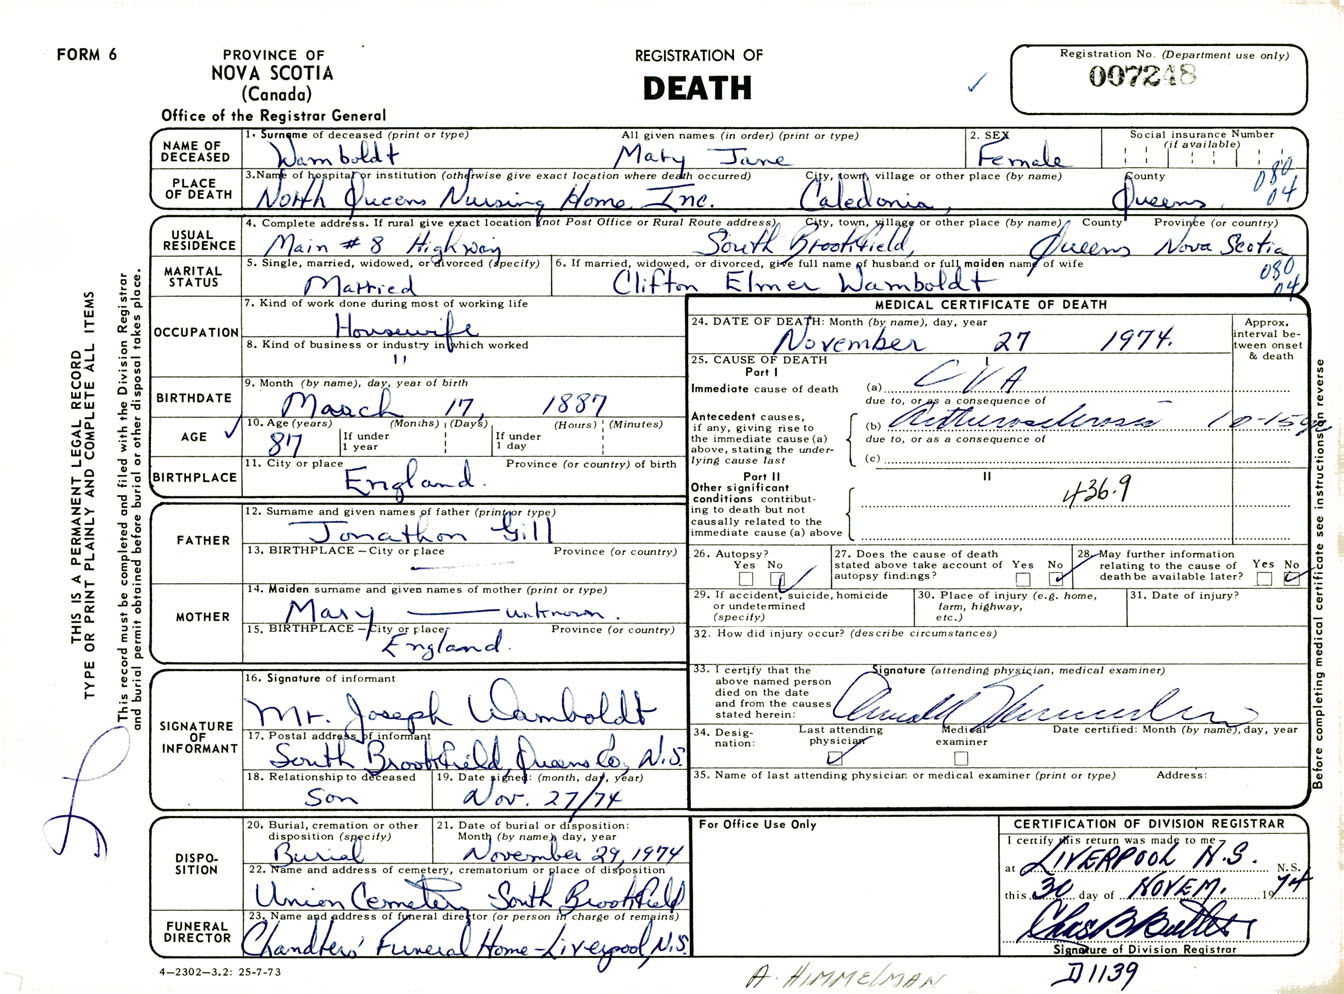 FORM 6
PROVINCE OF
NOVA SCOTIA
(Canada)
Office of the Registrar General
REGISTRATION OF
DEATH
Registration No. (Department use only)
007248
THIS IS A PERMANENT LEGAL RECORD
TYPE OR PRINT PLAINLY AND COMPLETE ALL ITEMS
This record must be completed and filed with the Division Registrar
and burial permit obtained before burial or other disposal takes place.
NAME OF
DECEASED
1. Surname of deceased (print or type) All given names (in order) (print or type)
Wamboldt Mary Jane
2. SEX
Female
Social insurance Number
(if available)
PLACE
OF DEATH
3. Name of hospital or institution (otherwise give exact location where death occurred) City, town, village or other place (by name) County
North Queens Nursing Home Inc. Caledonia, Queens.
080
04
USUAL
RESIDENCE
4. Complete address. If rural give exact location (not Post Office or Rural Route address) City, town, village or other place (by name) County Province (or country)
Main # 8 Highway South Brookfield, Queens Nova Scotia
080
04
MARITAL
STATUS
5. Single, married, widowed, or divorced (specify)
Married
6. If married, widowed, or divorced, give full name of husband or full maiden name of wife
Clifton Elmer Wamboldt
OCCUPATION
7. Kind of work done during most of working life
Housewife
8. Kind of business or industry in which worked
"
BIRTHDATE
9. Month (by name), day, year of birth
March 17, 1887
AGE
10. Age (years) (Months) (Days) (Hours) (Minutes)
87 If under
1 year
If under
1 day
BIRTHPLACE
11. City or place Province (or country) of birth
England.
FATHER
12. Surname and given names of father (print or type)
Jonathon Gill
13. BIRTHPLACE – City or place Province (or country)
MOTHER
14. Maiden surname and given names of mother (print or type)
Mary — unknown.
15. BIRTHPLACE – City or place Province (or country)
England.
SIGNATURE
OF
INFORMANT
16. Signature of informant
Mr. Joseph Wamboldt
17. Postal address of informant
South Brookfield, Queens Co, N.S.
18. Relationship to deceased
Son
19. Date signed: (month, day, year)
Nov. 27/74
DISPO-
SITION
20. Burial, cremation or other
disposition (specify)
Burial
21. Date of burial or disposition:
Month (by name), day, year
November 29, 1974
22. Name and address of cemetery, crematorium or place of disposition
Union Cemetery - South Brookfield
FUNERAL
DIRECTOR
23. Name and address of funeral director (or person in charge of remains)
Chandlers' Funeral Home - Liverpool, N.S.
4–2302–3.2: 25-7-73
MEDICAL CERTIFICATE OF DEATH
24. DATE OF DEATH: Month (by name), day, year
November 27 1974.
Approx.
interval be-
tween onset
& death
25. CAUSE OF DEATH
Part I
I
Immediate cause of death
(a) CVA
due to, or as a consequence of
Antecedent causes,
if any, giving rise to
the immediate cause (a)
above, stating the under-
lying cause last
(b) Arthersclerosis 10-15 yr
due to, or as a consequence of
(c)
Part II
II
Other significant
conditions contribut-
ing to death but not
causally related to the
immediate cause (a) above
436.9
26. Autopsy?
Yes No
27. Does the cause of death
stated above take account of
autopsy findings?
Yes No
28. May further information
relating to the cause of
death be available later?
Yes No
29. If accident, suicide, homicide
or undetermined
(specify)
30. Place of injury (e.g. home,
farm, highway,
etc.)
31. Date of injury?
32. How did injury occur? (describe circumstances)
33. I certify that the
above named person
died on the date
and from the causes
stated herein:
Signature (attending physician, medical examiner)
34. Desig-
nation:
Last attending
physician
Medical
examiner
Date certified: Month (by name), day, year
35. Name of last attending physician or medical examiner (print or type) Address:
Before completing medical certificate see instructions on reverse
For Office Use Only
CERTIFICATION OF DIVISION REGISTRAR
I certify this return was made to me
at LIVERPOOL N.S. N.S.
this 30 day of NOVEM. 1974
Chas B Butler
Signature of Division Registrar
D1139
A. HIMMELMAN